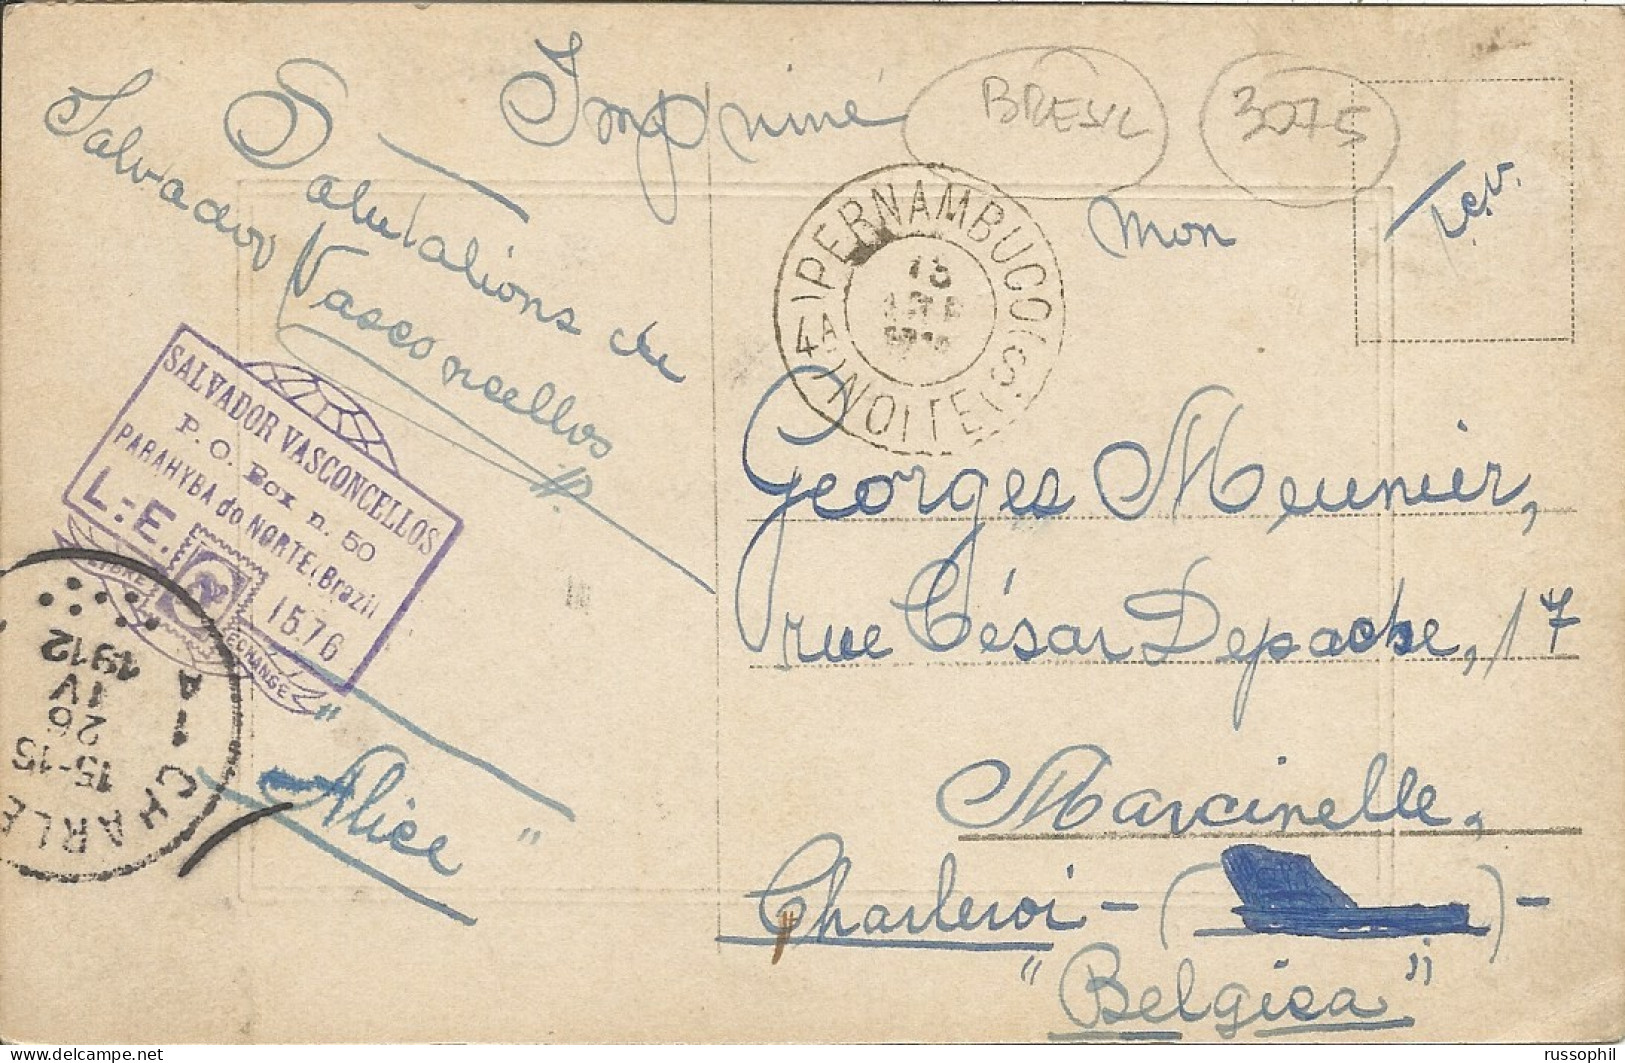 Imprimé
BRESIL
3075
Salutations de
Salvador Vasconcellos
T.C.V.
Mon
PERNAMBUCO
4A NOITE
SALVADOR VASCONCELLOS
P. O. Box n. 50
PARAHYBA do NORTE (Brazil
L.-E. 1576
LIBRE ECHANGE
Georges Meunier,
rue César Depache, 17
Marcinelle,
Charleroi - ( ) -
"Belgica"
"Alice"
A - CHARLE
15-15
26
IV
1912
russophil
delcampe.net